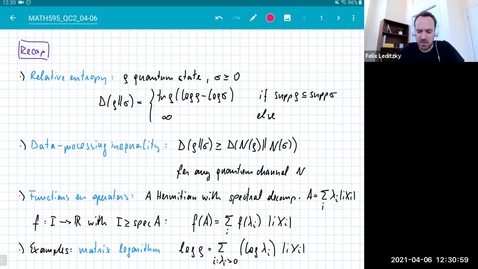 12:30
80%
MATH595_QC2_04-06
Felix Leditzky
Recap
·) Relative entropy: ρ quantum state, σ ≥ 0
D(ρ‖σ) = { tr ρ (log ρ − log σ) if supp ρ ⊆ supp σ
∞ else
·) Data-processing inequality: D(ρ‖σ) ≥ D(N(ρ)‖N(σ))
for any quantum channel N
·) Functions on operators: A Hermitian with spectral decomp. A = Σ_i λ_i |i⟩⟨i|
f: I → ℝ with I ⊇ spec A: f(A) = Σ_i f(λ_i) |i⟩⟨i|
·) Examples: matrix logarithm log ρ = Σ_{i: λ_i>0} (log λ_i) |i⟩⟨i|
2021-04-06 12:30:59